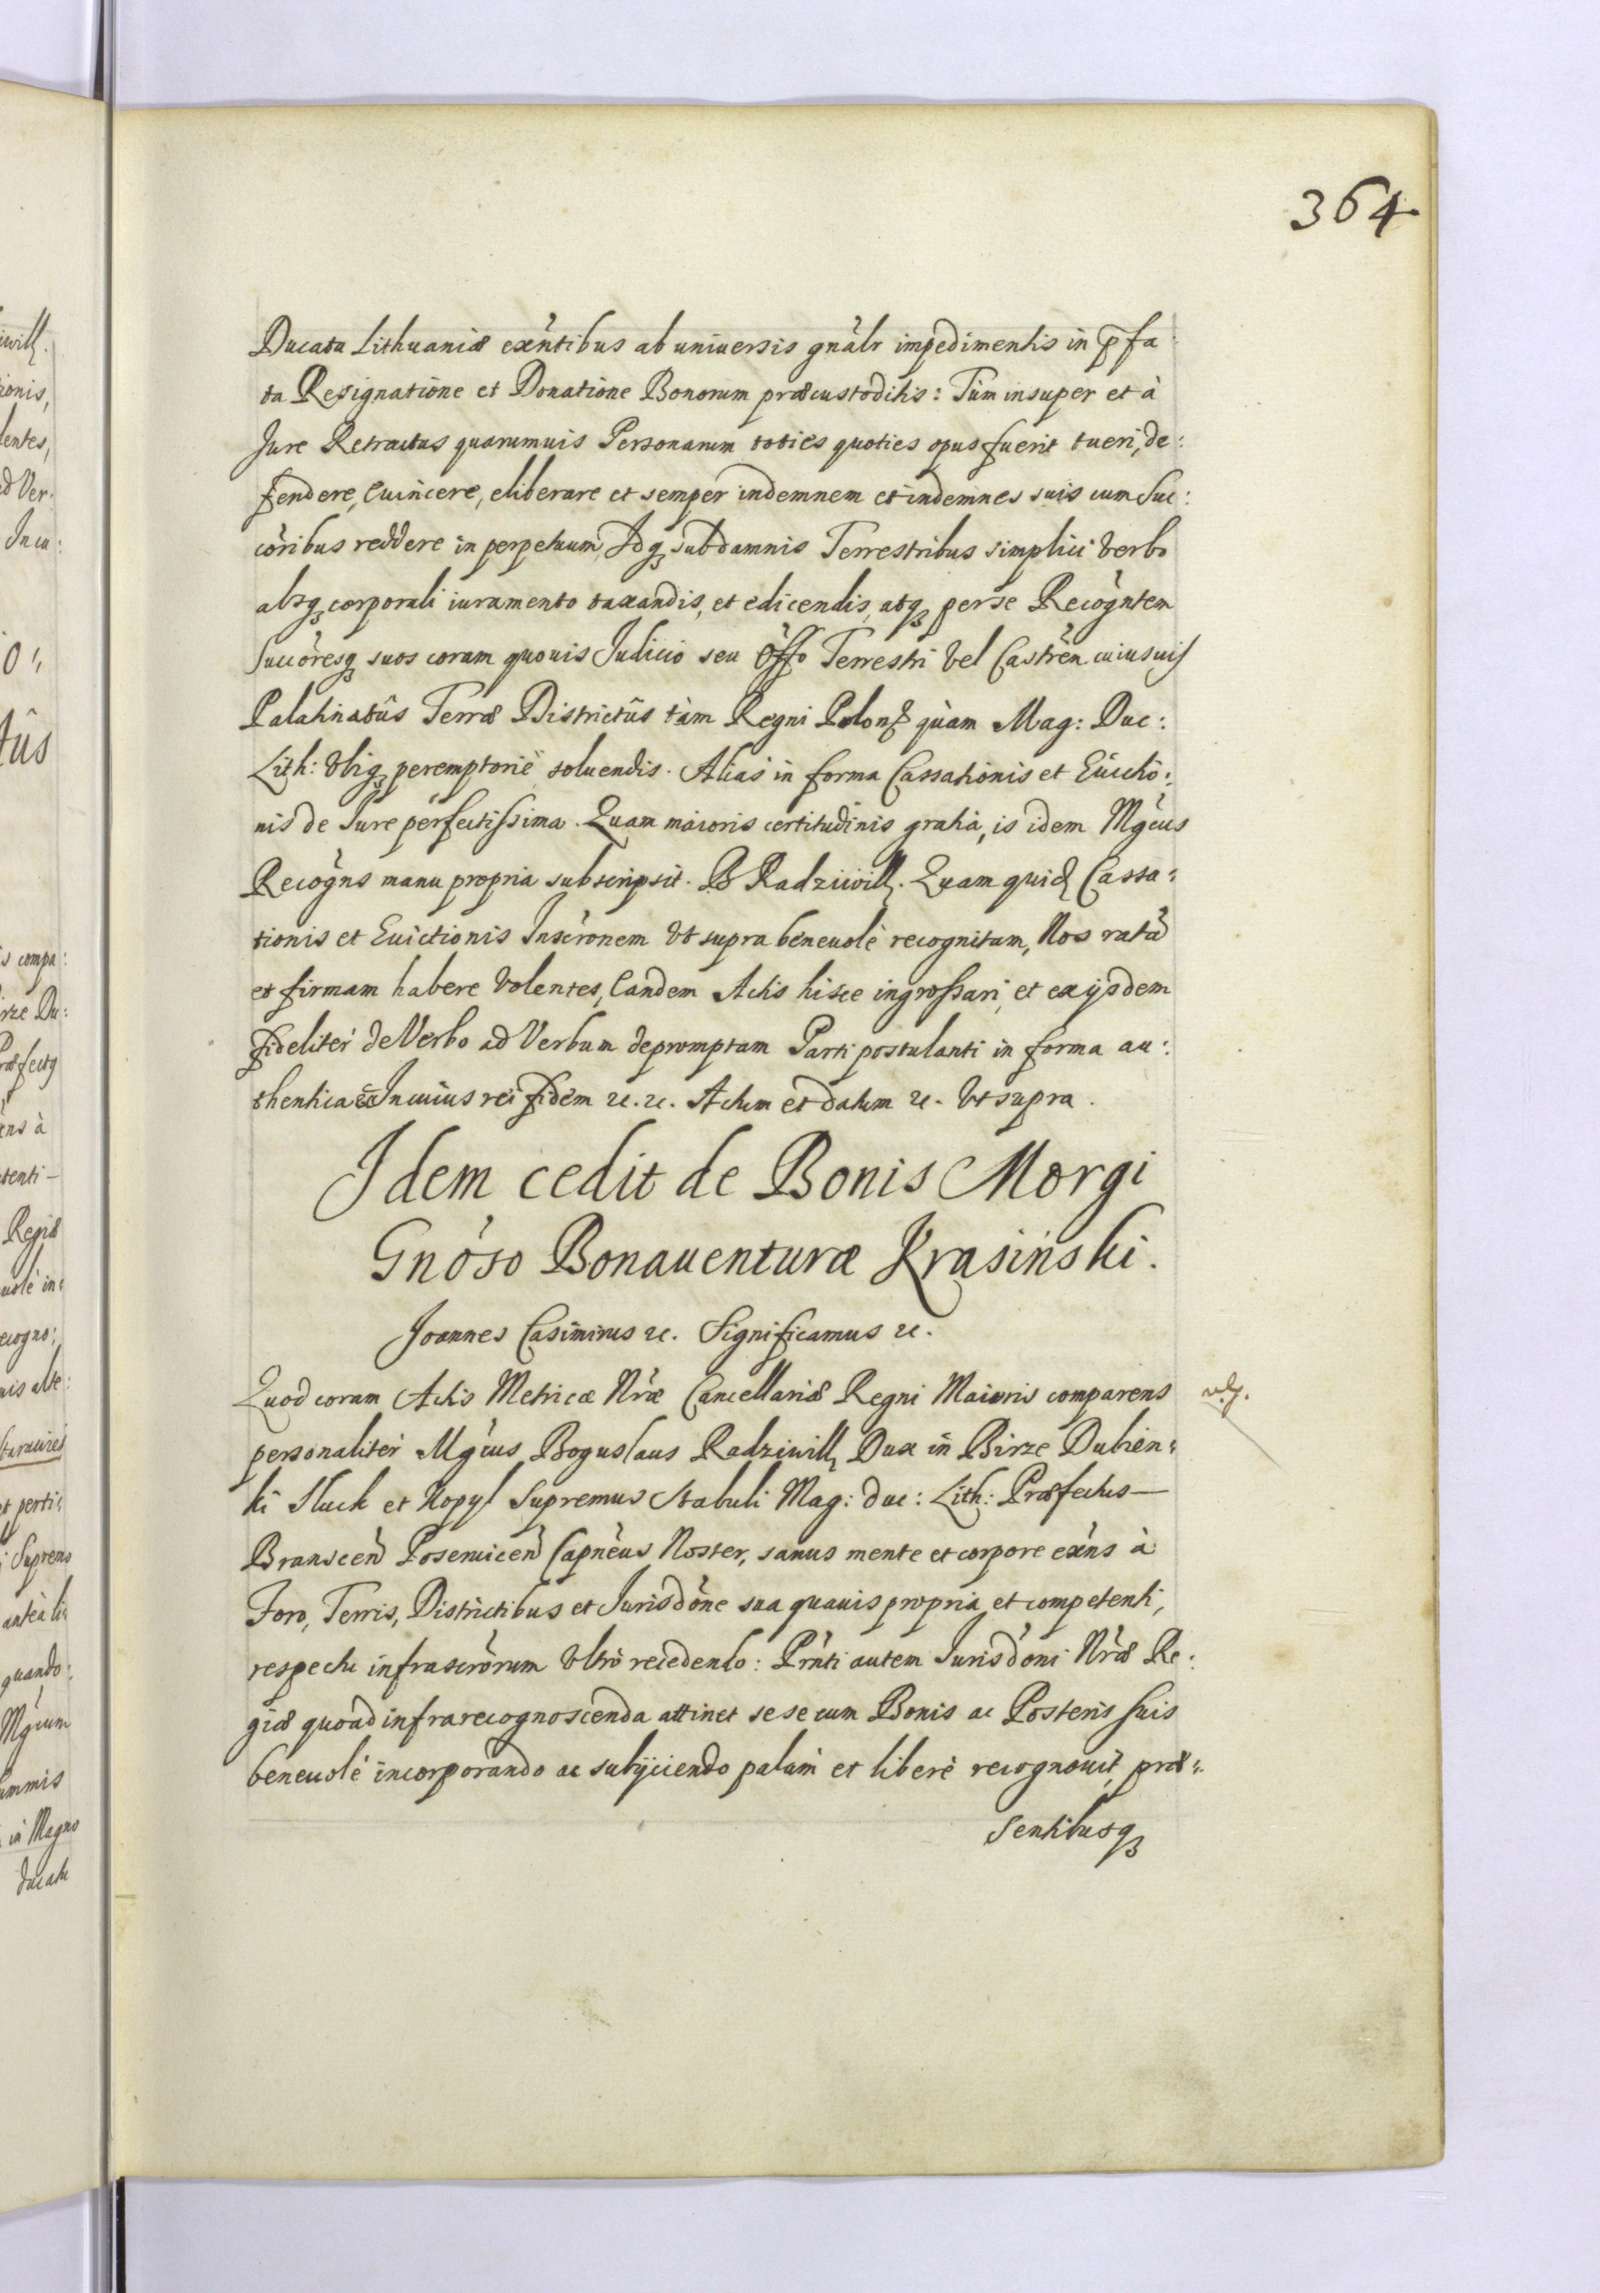 364
Ducatu Lithuaniæ exn̄tibus ab uniuersis gnãlr impedimentis in p̄fa
ta Resignatione et Donatione Bonorum præcustoditis: Tùm insuper et à
Jure Retractus quarumuis Personarum toties quoties opus fuerit tueri, de:
fendere, Euincere, eliberare et semper indemnem et indemnes suis cum Suc:
cõribus reddere in perpetuum, Idq; sub damnis Terrestribus simplici Verbo
absq; corporali iuramento taxandis, et edicendis, atq; per se Recogñtem
Succõresq; suos coram quouis Judicio seu Offo Terrestri Vel Castreñ cuiusuis
Palatinatûs Terræ Districtûs tàm Regni Poloñ quàm Mag: Duc:
Lith: Vbiq; peremptoriè soluendis. Alias in forma Cassationis et Euictio:
nis de Jure perfectissima. Quam maioris certitudinis gratia, is idem Mgcus
Recogñs manu propria subscripsit. B Radziwill. Quam quid Cassa:
tionis et Euictionis Inscrõnem Vt supra beneuolè recognitam, Nos ratã
et firmam habere Volentes, Eandem Actis hisce ingrossari, et ex ijsdem
fideliter de Verbo ad Verbum depromptam Parti postulanti in forma au:
thentica In cuius rei fidem &c. &c. Actum et datum &c. Vt supra.
Idem cedit de Bonis Morgi
Gnoso Bonauenturæ Krasinski.
Joannes Casimirus &c. Significamus &c.
Quod coram Actis Metricæ Nræ Cancellariæ Regni Maioris comparens
personaliter Mgcus Boguslaus Radziwill Dux in Birze Dubien:
ki Sluck et Kopyl Supremus Stabuli Mag: duc: Lith: Præfectus
Branscen Poseruicen Capneus Noster, sanus mente et corpore exñs à
Foro, Terris, Districtibus et Jurisdõne sua quauis propria et competenti,
respectu infrascrõrum Vltrò recedendo: Prnti autem Jurisdõni Nræ Re:
giæ quoad infra recognoscenda attinet sese cum Bonis ac Posteris suis
beneuolè incorporando ac subijciendo palàm et liberè recognouit, præ:
sentibusq;